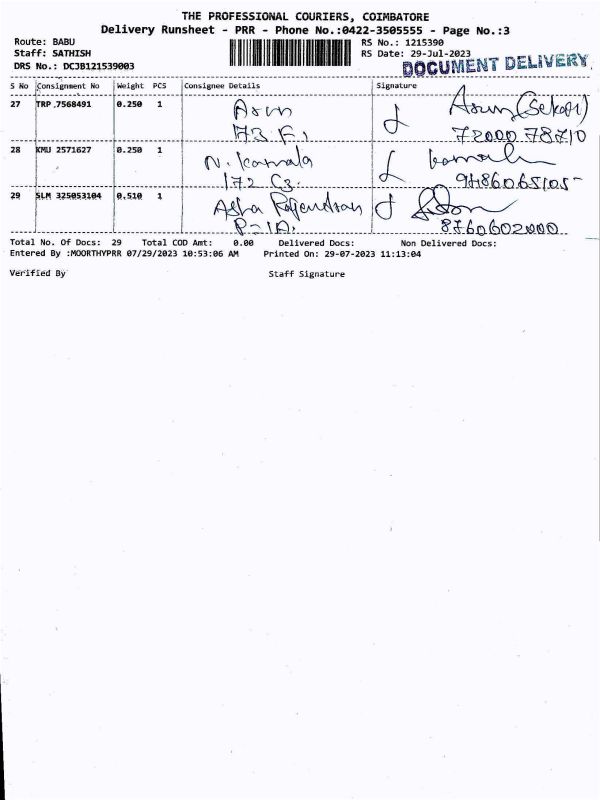 THE PROFESSIONAL COURIERS, COIMBATORE
Delivery Runsheet - PRR - Phone No.:0422-3505555 - Page No.:3
Route: BABU RS No.: 1215390
Staff: SATHISH RS Date: 29-Jul-2023
DRS No.: DCJB121539003 DOCUMENT DELIVERY
S No Consignment No Weight PCS Consignee Details Signature
27 TRP 7568491 0.250 1 Arun Arun (Sekar)
173 F1 72000 78710
28 KMU 2571627 0.250 1 N. Kamala kamala
172 C3. 9486065105
29 SLM 325053104 0.510 1 Asha Rajendran
P-1A. 8760602000
Total No. Of Docs: 29 Total COD Amt: 0.00 Delivered Docs: Non Delivered Docs:
Entered By :MOORTHYPRR 07/29/2023 10:53:06 AM Printed On: 29-07-2023 11:13:04
Verified By Staff Signature